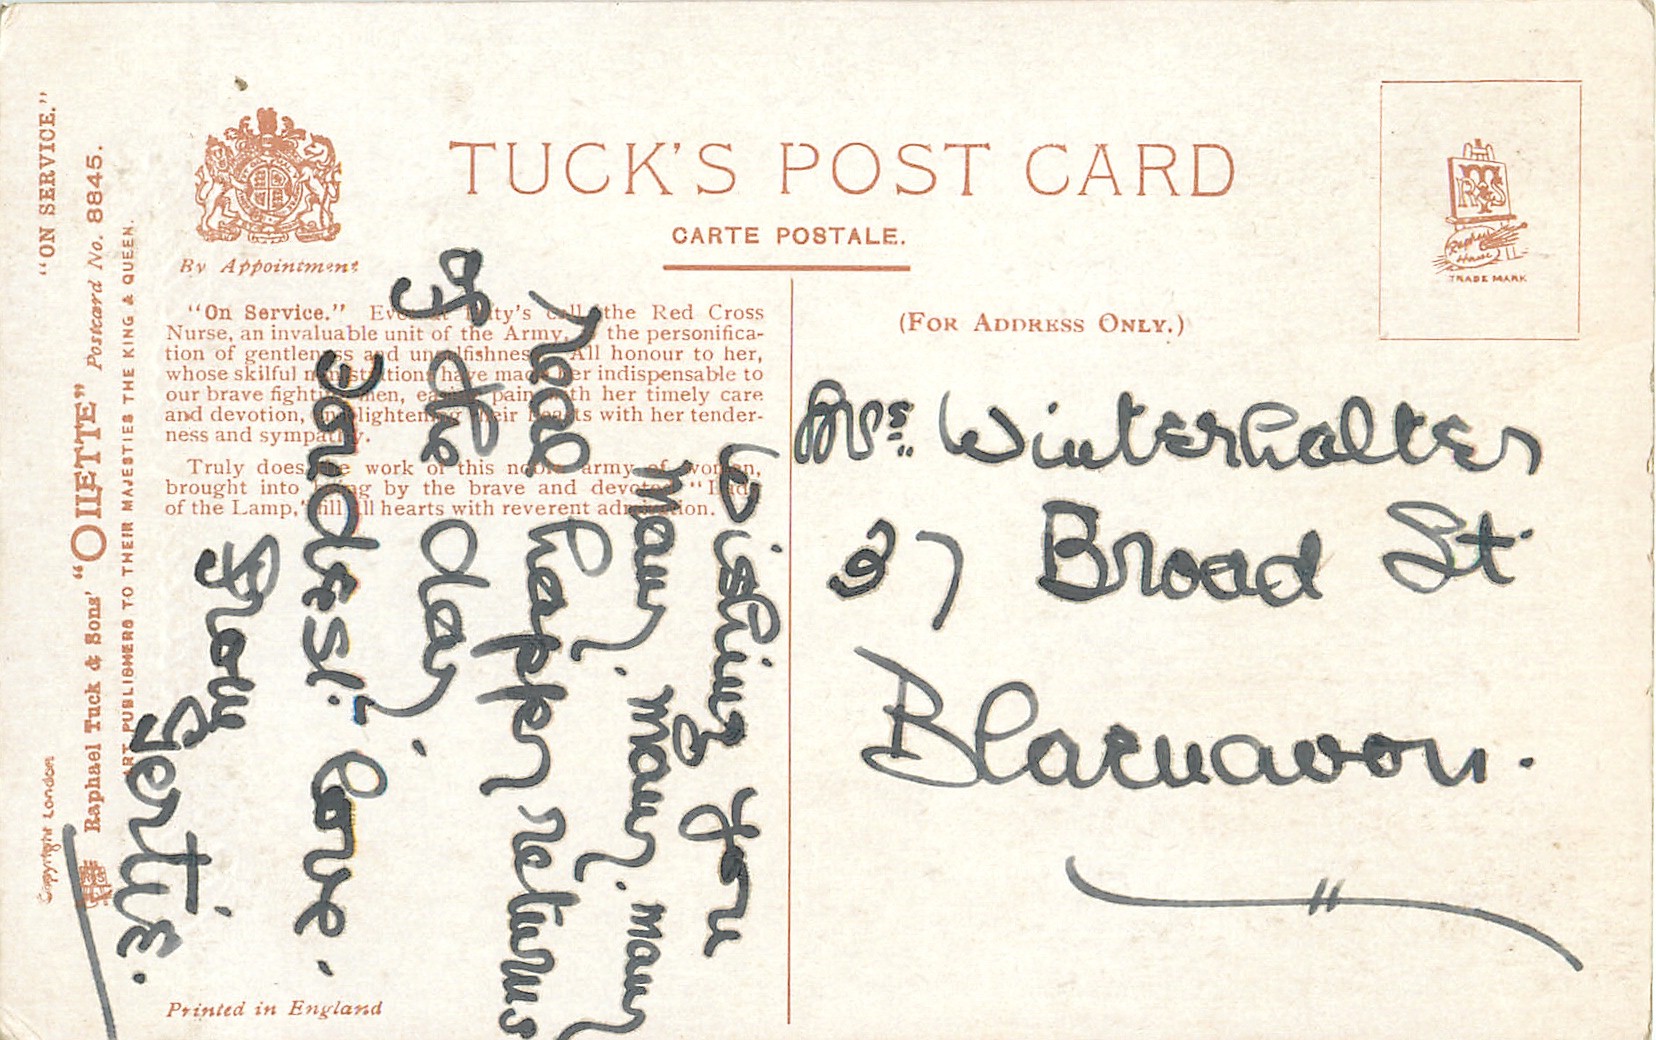 "ON SERVICE."
Raphael Tuck & Sons' "OILETTE" Postcard No. 8845.
ART PUBLISHERS TO THEIR MAJESTIES THE KING & QUEEN.
Copyright London
By Appointment
TUCK'S POST CARD
CARTE POSTALE.
TRADE MARK
(FOR ADDRESS ONLY.)
"On Service." Ever at Duty's call the Red Cross
Nurse, an invaluable unit of the Army, is the personifica-
tion of gentleness and unselfishness. All honour to her,
whose skilful ministrations have made her indispensable to
our brave fighting men, easing pain with her timely care
and devotion, and lightening their hearts with her tender-
ness and sympathy.
Truly does the work of this noble army of women,
brought into being by the brave and devoted "Lady
of the Lamp," fill all hearts with reverent admiration.
Printed in England
Wishing you
Many. Many. Many
real happy returns
of the day.
Fondest Love.
from
Gertie.
Mrs. Winterhalter
37 Broad St
Blaenavon.